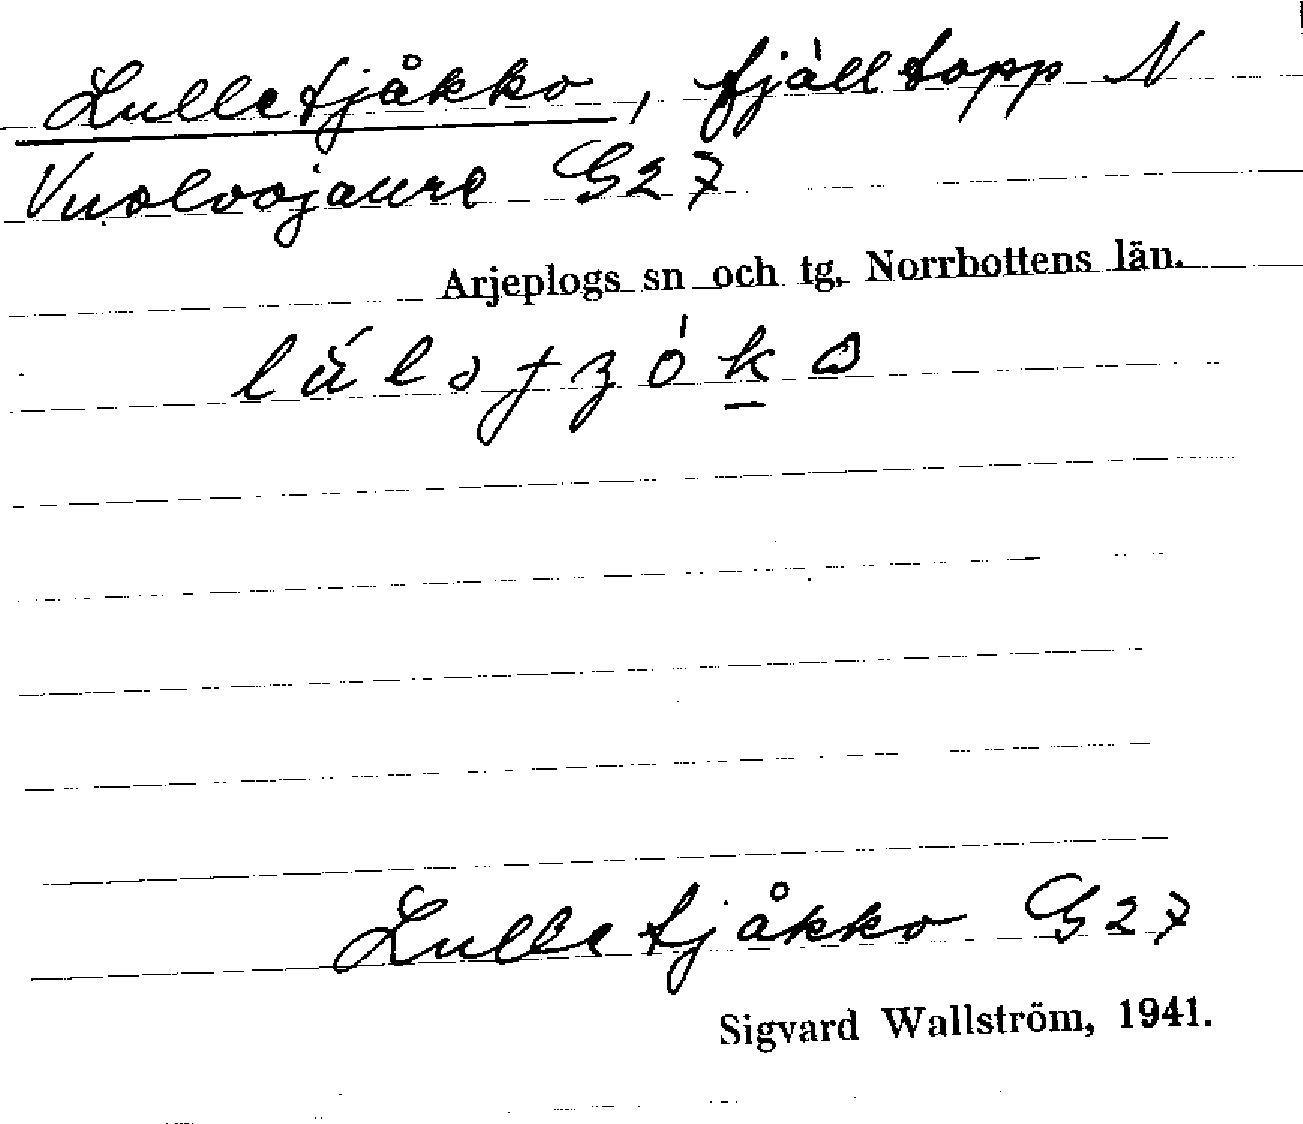 Lulletjåkko, fjälltopp N
Vuolvojaure G27
Arjeplogs sn och tg, Norrbottens län.
Lulletjåkko G27
Sigvard Wallström, 1941.